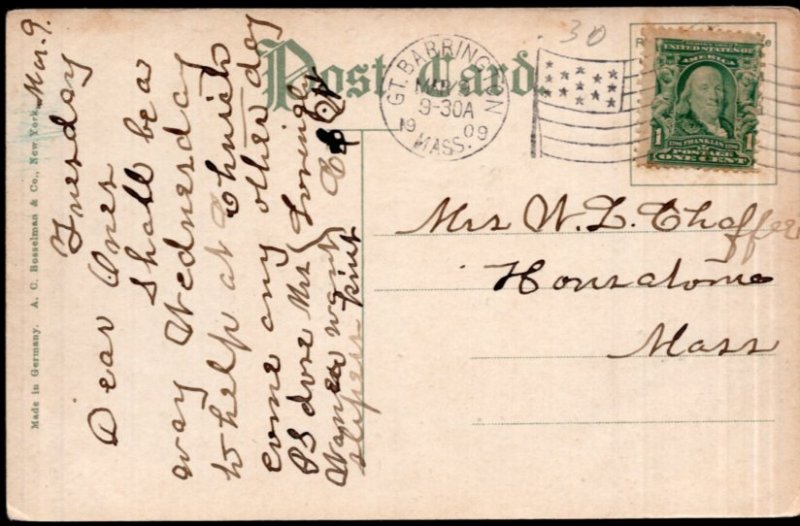 Post Card.
GT. BARRINGTON
MAR 9
9-30A
1909
MASS.
30
UNITED STATES OF
AMERICA
1
FRANKLIN
POSTAGE
ONE CENT
Mrs W. L. Chaffee
Housatonic
Mass
Mar. 9.
Tuesday
Dear Ones
Shall be a
way Wednesday
to help at Church
come any other day
Lovingly
PS does Mrs
Warner want pink
slipers
Made in Germany. A. C. Bosselman & Co., New York.